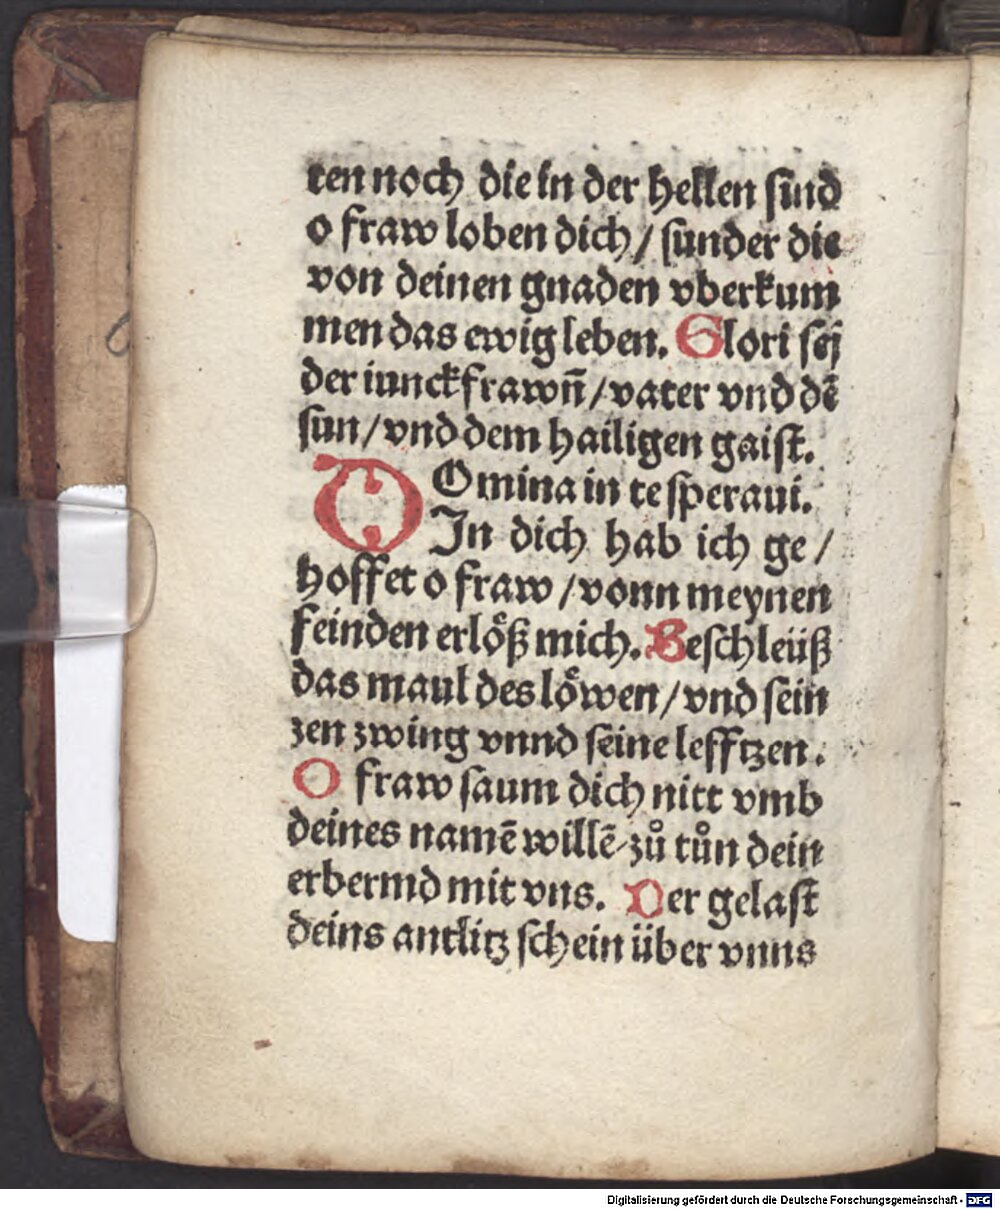 ten noch die in der hellen sind
o fraw loben dich / sunder die
von deinen gnaden vberkum
men das ewig leben. Glori sej
der iunckfrawn̄ / vater vnd dē
sun / vnd dem hailigen gaist.
DOmina in te speraui.
In dich hab ich ge /
hoffet o fraw / vonn meynen
feinden erlöß mich. Beschleüß
das maul des löwen / vnd sein
zen zwing vnnd seine lefftzen.
O fraw saum dich nitt vmb
deines namē willē zů tůn dein
erbermd mit vns. Der gelast
deins antlitz schein über vnns
Digitalisierung gefördert durch die Deutsche Forschungsgemeinschaft - DFG